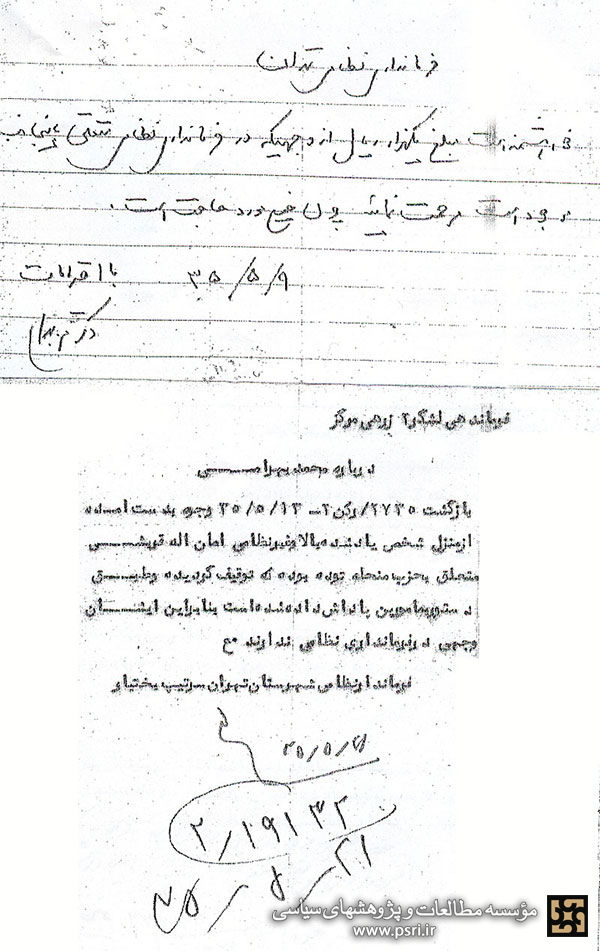 فرمانداری نظامی تهران
خواهشمند است مبلغ یکهزار ریال از وجهیکه در فرمانداری نظامی متعلق باینجانب
موجود است مرحمت نمائید چون خیلی مورد حاجت است.
۳۵/۵/۹ با احترامات
دکتر بهرامی
فرماندهی لشگر۲ زرهی مرکز
درباره محمد بهرامــــی
بازگشت ۲۷۳۵/رکن۲ـ ۳۵/۵/۱۳ وجوه بدست امــده
ازمنزل شخص یادشده بالا وغیرنظامی امان اله قریشــی
متعلق بحزب منحله توده بوده که توقیف گردیده وطبــق
دستور بمامورین پاداش داده شده است بنابراین ایشــان
وجهی درفرمانداری نظامی ندارند مع
فرماندارنظامی شهرستان تهران سرتیپ بختیار
۳۵/۵/۲۱
۲/۱۹۱۳۲
۳۵/۵/۲۱
مؤسسه مطالعات و پژوهشهای سیاسی
www.psri.ir